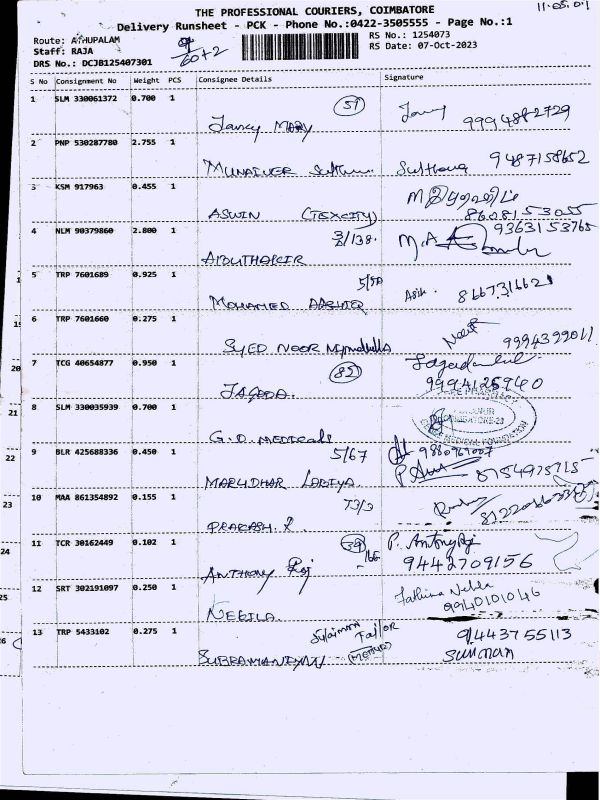 THE PROFESSIONAL COURIERS, COIMBATORE
11-05.01
Delivery Runsheet - PCK - Phone No.:0422-3505555 - Page No.:1
Route: ATHUPALAM
RS No.: 1254073
Staff: RAJA
60+2
RS Date: 07-Oct-2023
DRS No.: DCJB125407301
S No Consignment No Weight PCS Consignee Details Signature
1 SLM 330061372 0.700 1 51
Jancy MARY
9994882729
2 PNP 530287780 2.755 1
MUNAIVER
9487158652
3 KSM 917963 0.455 1
ASWIN (TEXCITY)
8608153055
4 NLM 90379860 2.800 1 3/138.
9363153765
M.A
5 TRP 7601689 0.925 1 5/50
MOHAMED AASHIQ
Asik. 8667316621
6 TRP 7601660 0.275 1
SYED NOOR
9994399011
7 TCG 40654877 0.950 1 85
JAGODA.
9994126940
8 SLM 330035939 0.700 1
G.D. MEDICALS
9 BLR 425688336 0.450 1 5/67
MARUDHAR
8754975715
10 MAA 861354892 0.155 1 T3/3
PRAKASH.R
11 TCR 30162449 0.102 1 39
ANTHONY Raj
P. Antony Raj
9442709156
12 SRT 302191097 0.250 1
NEBILA.
Fathima
9940101046
13 TRP 5433102 0.275 1 Sulaiman Tailor
SUBRAMANIYAN
9443755113
20
21
22
23
24